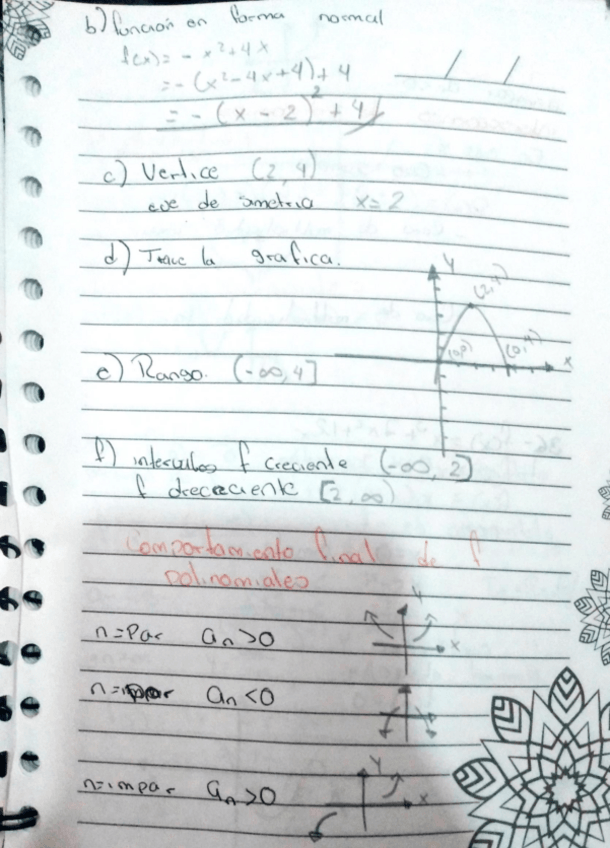 b) función en forma normal
f(x) = - x²+4x
= - (x²-4x+4)+4
= - (x - 2)² + 4
c) Vertice (2,4)
eje de simetria x=2
d) Trace la grafica.
y
(2,4)
(0,0) (0,4)
x
e) Rango. (-∞,4]
f) intervalos f creciente (-∞, 2]
f drececiente [2, ∞)
Comportamiento final de f
polinomiales
n=Par an>0
y
x
n=par an<0
n=impar an>0
y
x